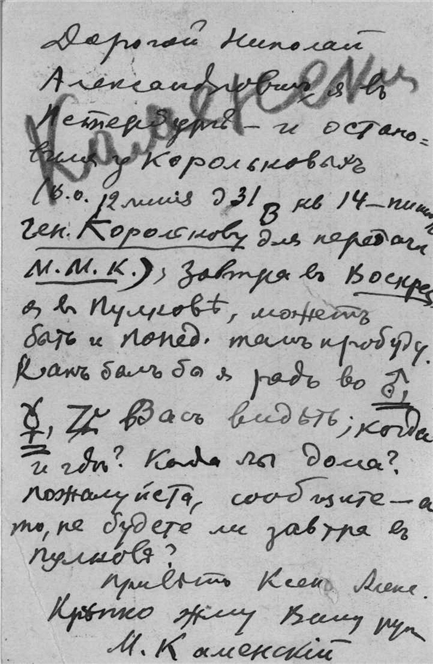 Дорогой Николай
Александрович, я въ
Петербургѣ — и остано=
вился у Корольковыхъ
(В.О. 12 линія д 31 В кв 14 — пишите
Ген. Королькову для передачи
М.М.К.); завтра въ Воскрес.
я въ Пулковѣ, можетъ
быть и понед. тамъ пробуду.
Какъ былъ бы я радъ во ♂,
☿, ♃ Васъ видѣть; когда
и гдѣ? Когда Вы дома?
пожалуйста, сообщите — а
то, не будете ли завтра въ
Пулковѣ?
Привѣтъ Ксен. Алекс.
Крѣпко жму Вашу руку
М. Каменскій
Каменский